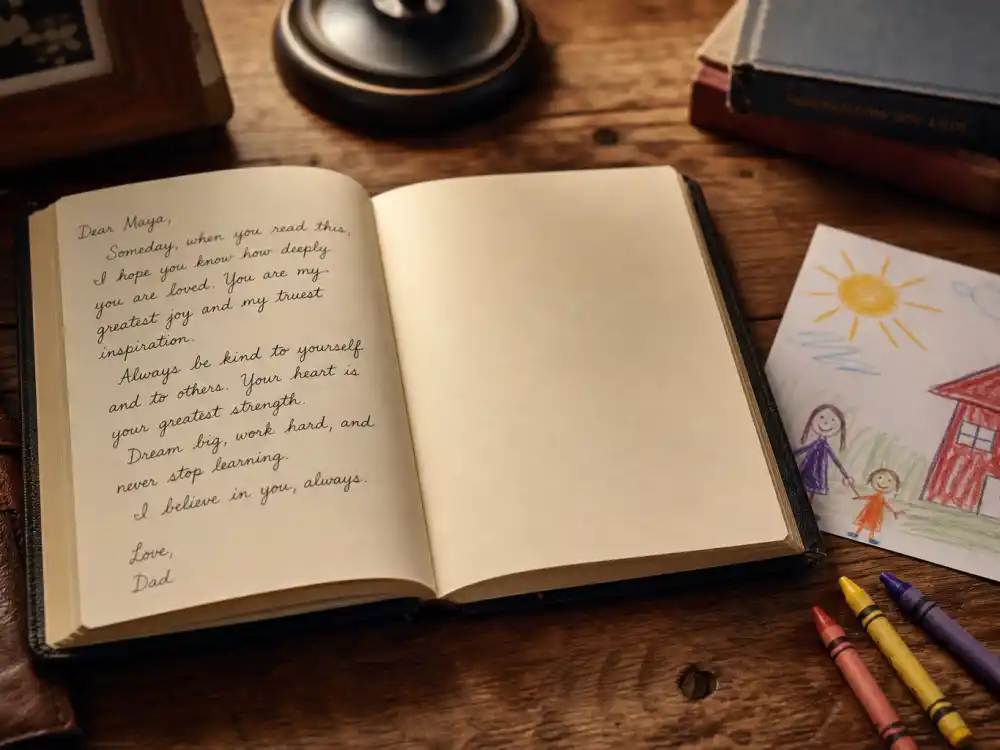 Dear Maya,
Someday, when you read this,
I hope you know how deeply
you are loved. You are my
greatest joy and my truest
inspiration.
Always be kind to yourself
and to others. Your heart is
your greatest strength.
Dream big, work hard, and
never stop learning.
I believe in you, always.
Love,
Dad